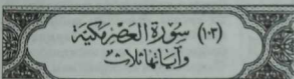 (١٠٣) سُورَةُ الْعَصْرِ مَكِّيَّة
وَآيَاتُهَا ثَلَاث